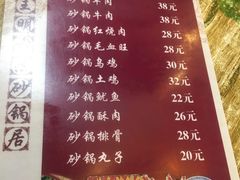 砂锅羊肉 38元
砂锅牛肉 38元
砂锅红烧肉 28元
砂锅毛血旺 28元
砂锅乌鸡 30元
砂锅土鸡 32元
砂锅鱿鱼 22元
砂锅酥肉 26元
砂锅排骨 28元
砂锅丸子 20元
明
砂
锅
居